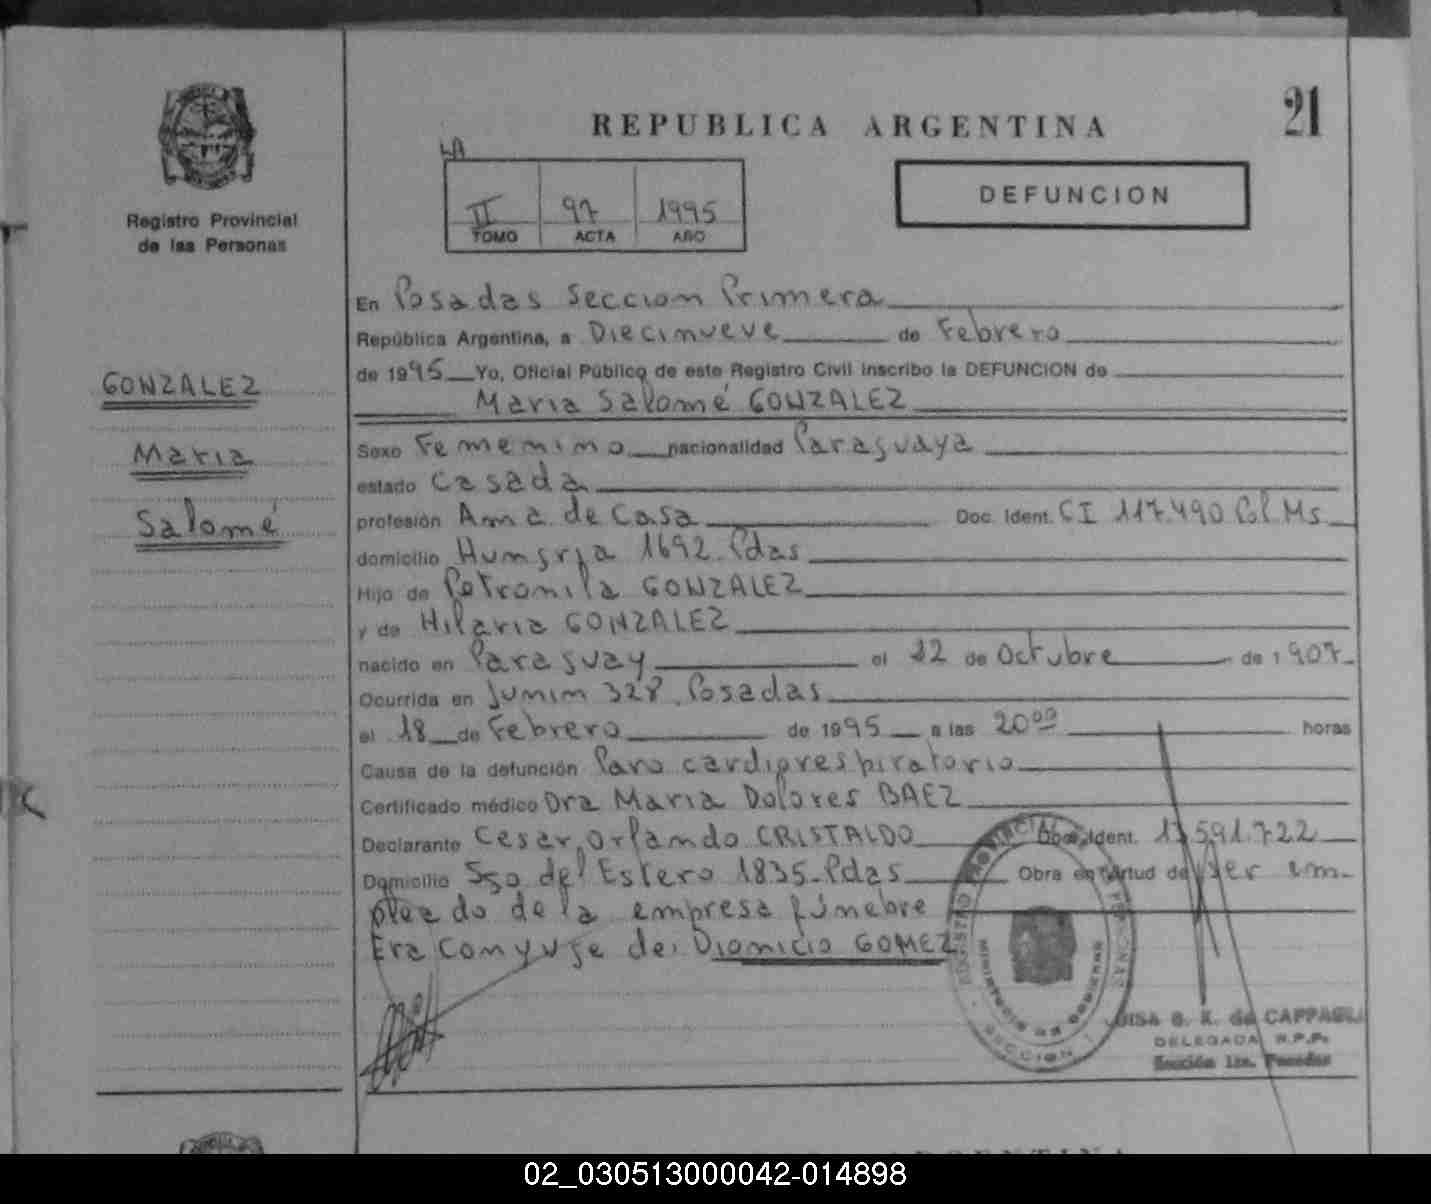 21
REPUBLICA ARGENTINA
LA
II 97 1995
TOMO ACTA AÑO
DEFUNCION
Registro Provincial
de las Personas
GONZALEZ
Maria
Salomé
En Posadas Seccion Primera
República Argentina, a Diecinueve de Febrero
de 1995 Yo, Oficial Público de este Registro Civil inscribo la DEFUNCION de
Maria Salomé GONZALEZ
Sexo Femenino nacionalidad Paraguaya
estado Casada
profesión Ama de Casa Doc. Ident. CI 117.490 Pol Ms
domicilio Hungria 1692. Pdas
Hijo de Petronila GONZALEZ
y de Hilaria GONZALEZ
nacido en Paraguay el 12 de Octubre de 1907
Ocurrida en Junin 328. Posadas
el 18 de Febrero de 1995 a las 20⁰⁰ horas
Causa de la defunción Paro cardiorespiratorio
Certificado médico Dra Maria Dolores BAEZ
Declarante Cesar Orlando CRISTALDO Doc. Ident. 13.591.722
Domicilio Sgo del Estero 1835-Pdas Obra en virtud de ser em-
pleado de la empresa fúnebre
Era Conyuge de: Dionicio GOMEZ
REGISTRO PROVINCIAL DE LAS PERSONAS
MINISTERIO DE GOBIERNO
SECCION 1
LUISA S. K. de CAPPAGLI
DELEGADA R.P.P.
Sección 1ra. Posadas
ARGENTINA
02_030513000042-014898